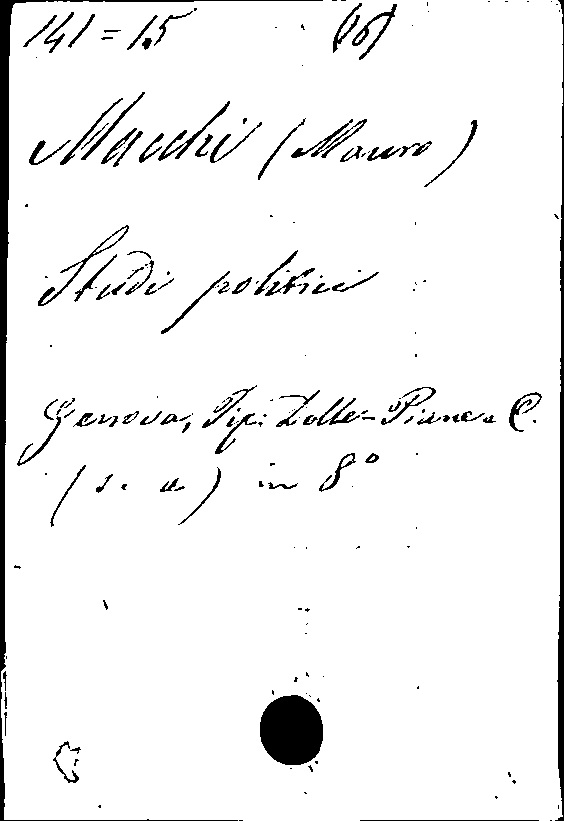 141 = 15 (16)
Macchi (Mauro)
Studi politici
Genova, Tip: Delle-Piane e C.
(s. a) in 8°